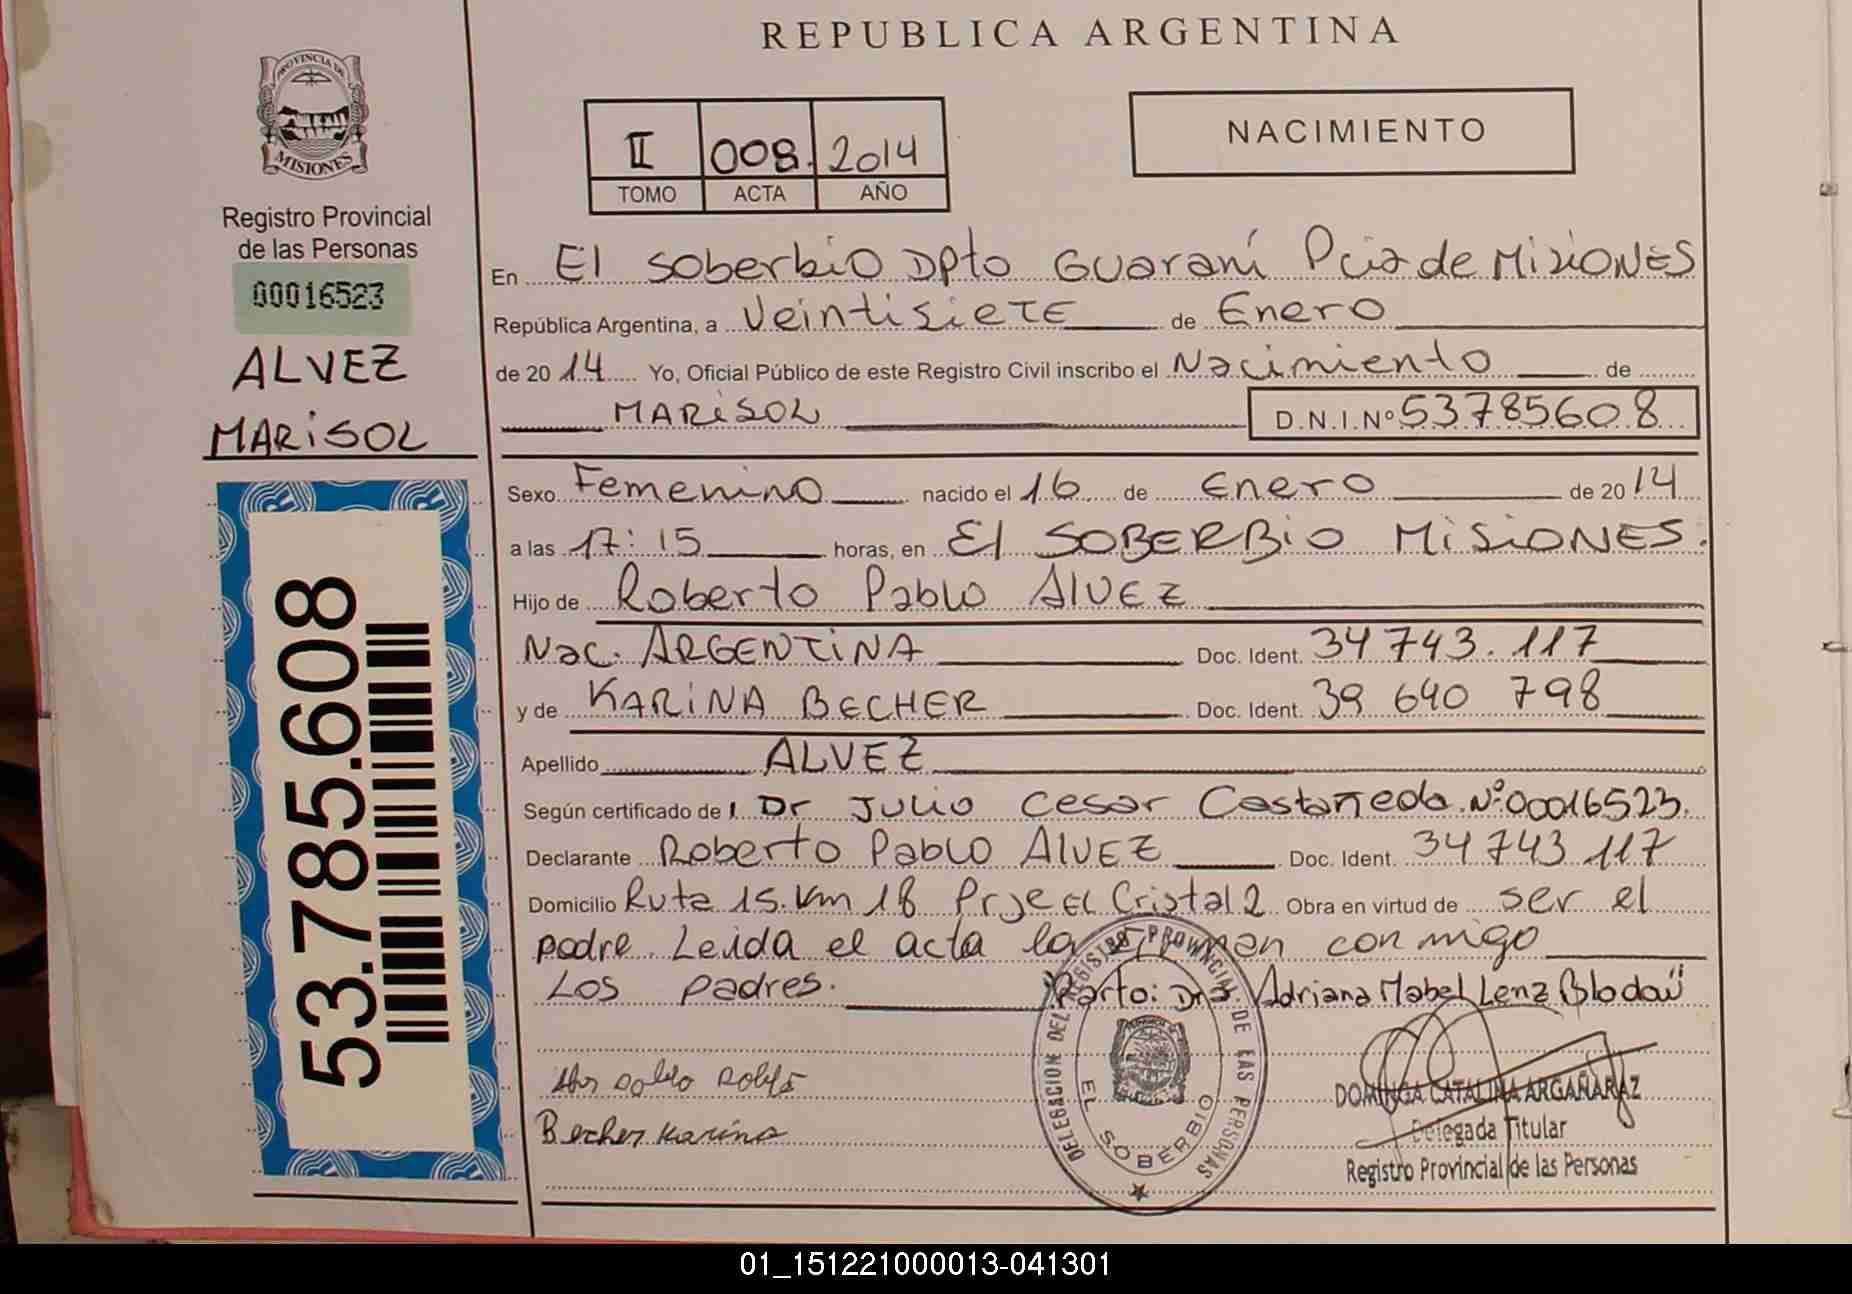 REPUBLICA ARGENTINA
PROVINCIA DE
MISIONES
Registro Provincial
de las Personas
00016523
ALVEZ
MARISOL
53.785.608
II 008. 2014
TOMO ACTA AÑO
NACIMIENTO
En El Soberbio Dpto Guaraní Pcia de MISIONES
República Argentina, a Veintisiete de Enero
de 2014 Yo, Oficial Público de este Registro Civil inscribo el Nacimiento de
MARISOL D.N.I.Nº 53785608
Sexo Femenino nacido el 16 de Enero de 2014
a las 17:15 horas, en El SOBERBIO MISIONES.
Hijo de Roberto Pablo Alvez
Nac. ARGENTINA Doc. Ident. 34 743.117
y de KARINA BECHER Doc. Ident. 39 640 798
Apellido ALVEZ
Según certificado de Dr Julio Cesar Castañeda Nº 00016523.
Declarante Roberto Pablo Alvez Doc. Ident. 34 743 117
Domicilio Ruta 15 Km 18 Prje El Cristal 2 Obra en virtud de ser el
padre. Leida el acta la firman conmigo
Los padres. Parto: Dra. Adriana Mabel Lenz Blodow
Becher Karina
DELEGACION DEL REGISTRO PROVINCIAL DE LAS PERSONAS
EL SOBERBIO
DOMINGA CATALINA ARGAÑARAZ
Delegada Titular
Registro Provincial de las Personas
01_151221000013-041301